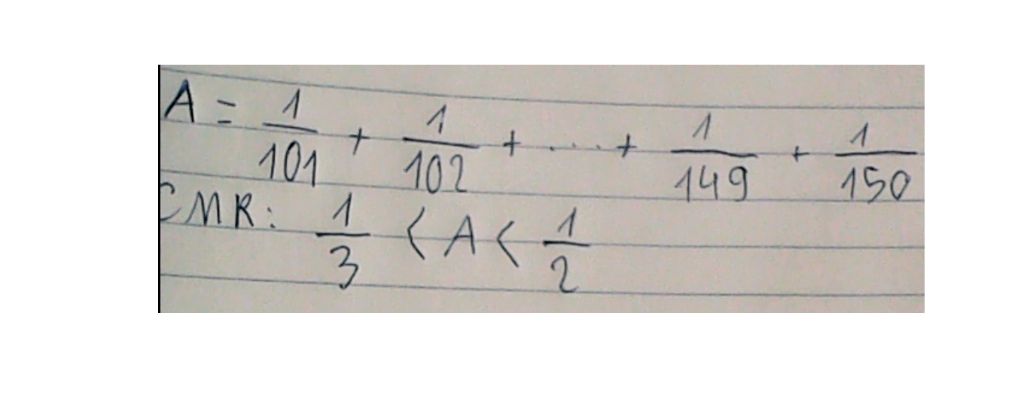 A = 1/101 + 1/102 + .... + 1/149 + 1/150
CMR: 1/3 < A < 1/2